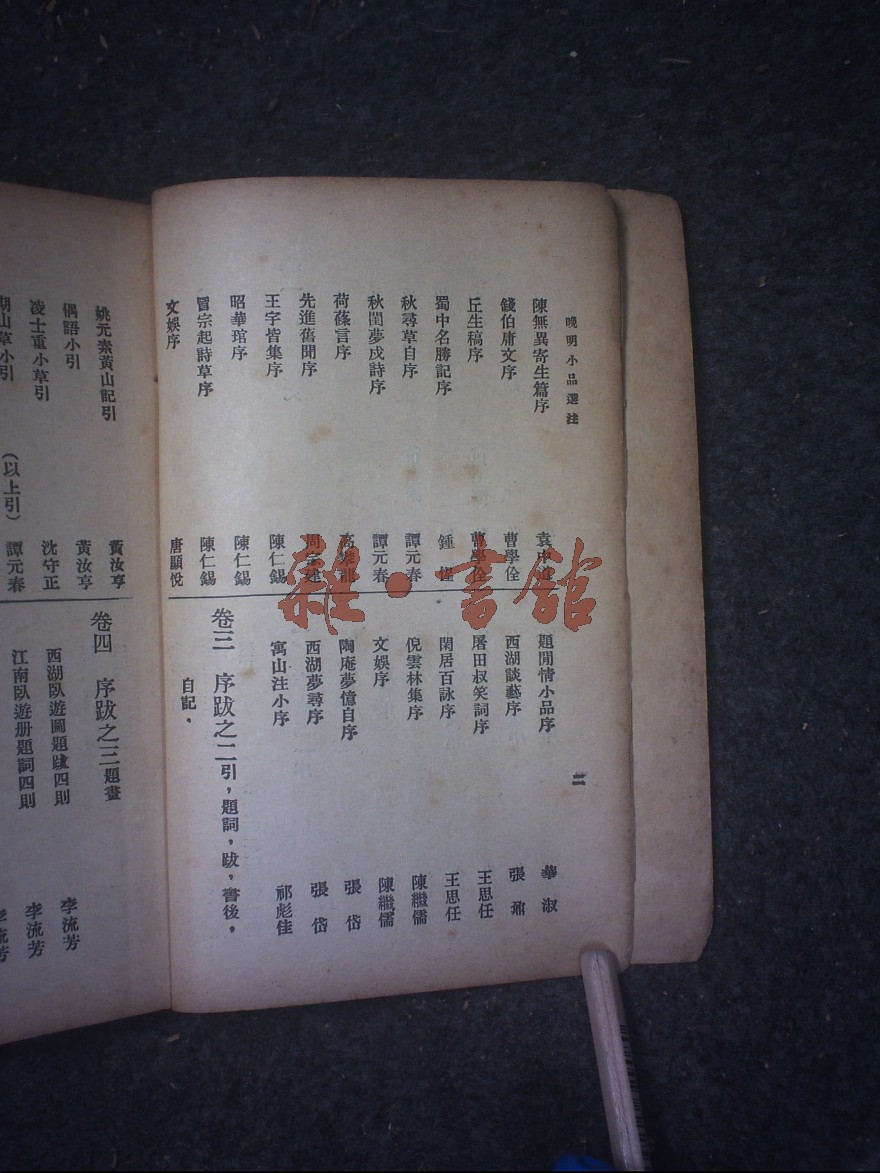 晚明小品選注
陳無異寄生篇序 袁中道
錢伯庸文序 曹學佺
丘生稿序 曹學佺
蜀中名勝記序 鍾惺
秋尋草自序 譚元春
秋閨夢戍詩序 譚元春
荷蓧言序 高攀龍
先進舊聞序 周宗建
王字皆集序 陳仁錫
昭華琯序 陳仁錫
冒宗起詩草序 陳仁錫
文娛序 唐顯悅
題閒情小品序 華淑
西湖談藝序 張鼐
屠田叔笑詞序 王思任
閑居百詠序 王思任
倪雲林集序 陳繼儒
文娛序 陳繼儒
陶庵夢憶自序 張岱
西湖夢尋序 張岱
寓山注小序 祁彪佳
卷三 序跋之二引，題詞，跋，書後，
自記，
二
姚元素黃山記引 黃汝亨
偶語小引 黃汝亨
凌士重小草引 沈守正
湖山草小引 譚元春
（以上引）
卷四 序跋之三題畫
西湖臥遊圖題跋四則 李流芳
江南臥遊册題詞四則 李流芳
李流芳
雜·書館